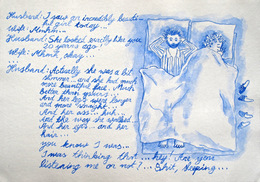 Husband: I saw an incredibly beauti-
ful girl today...
Wife: Mmhm...
Husband: She looked exactly like you
20 years ago!
Wife: Mhmh, okay...
Husband: Actually she was a bit
slimmer... and she had much
more beautiful face. Much
better than yours...
And her legs were longer
and more
And her ass... huh...
And the way she walked...
And her eyes... and her
hair...
you know I was...
I was thinking that... hey! Are you
listening me or not?... Shit, sleeping...